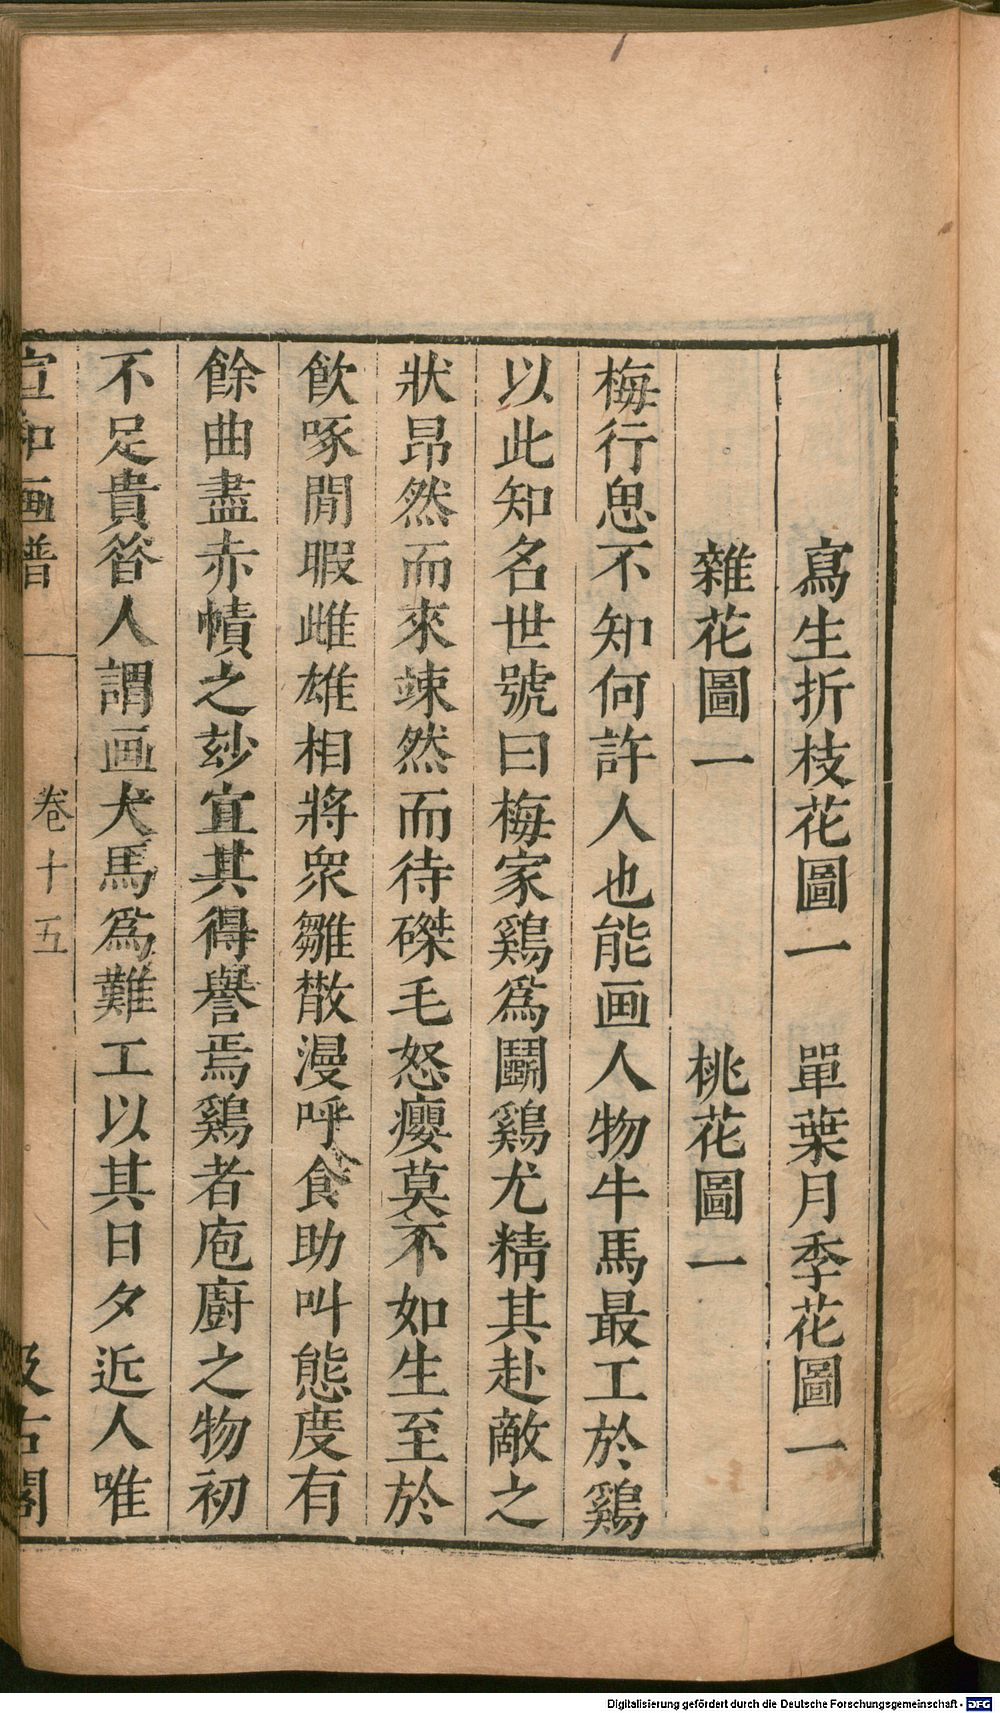 寫生折枝花圖一　單葉月季花圖一
雜花圖一　桃花圖一
梅行思不知何許人也能画人物牛馬最工於鷄
以此知名世號曰梅家鷄爲鬭鷄尤精其赴敵之
狀昂然而來竦然而待磔毛怒癭莫不如生至於
飲啄閒暇雌雄相將衆雛散漫呼食助叫態度有
餘曲盡赤幘之玅宜其得譽焉鷄者庖廚之物初
不足貴昝人謂画犬馬爲難工以其日夕近人唯
宣和画譜　卷十五　汲古閣
Digitalisierung gefördert durch die Deutsche Forschungsgemeinschaft - DFG